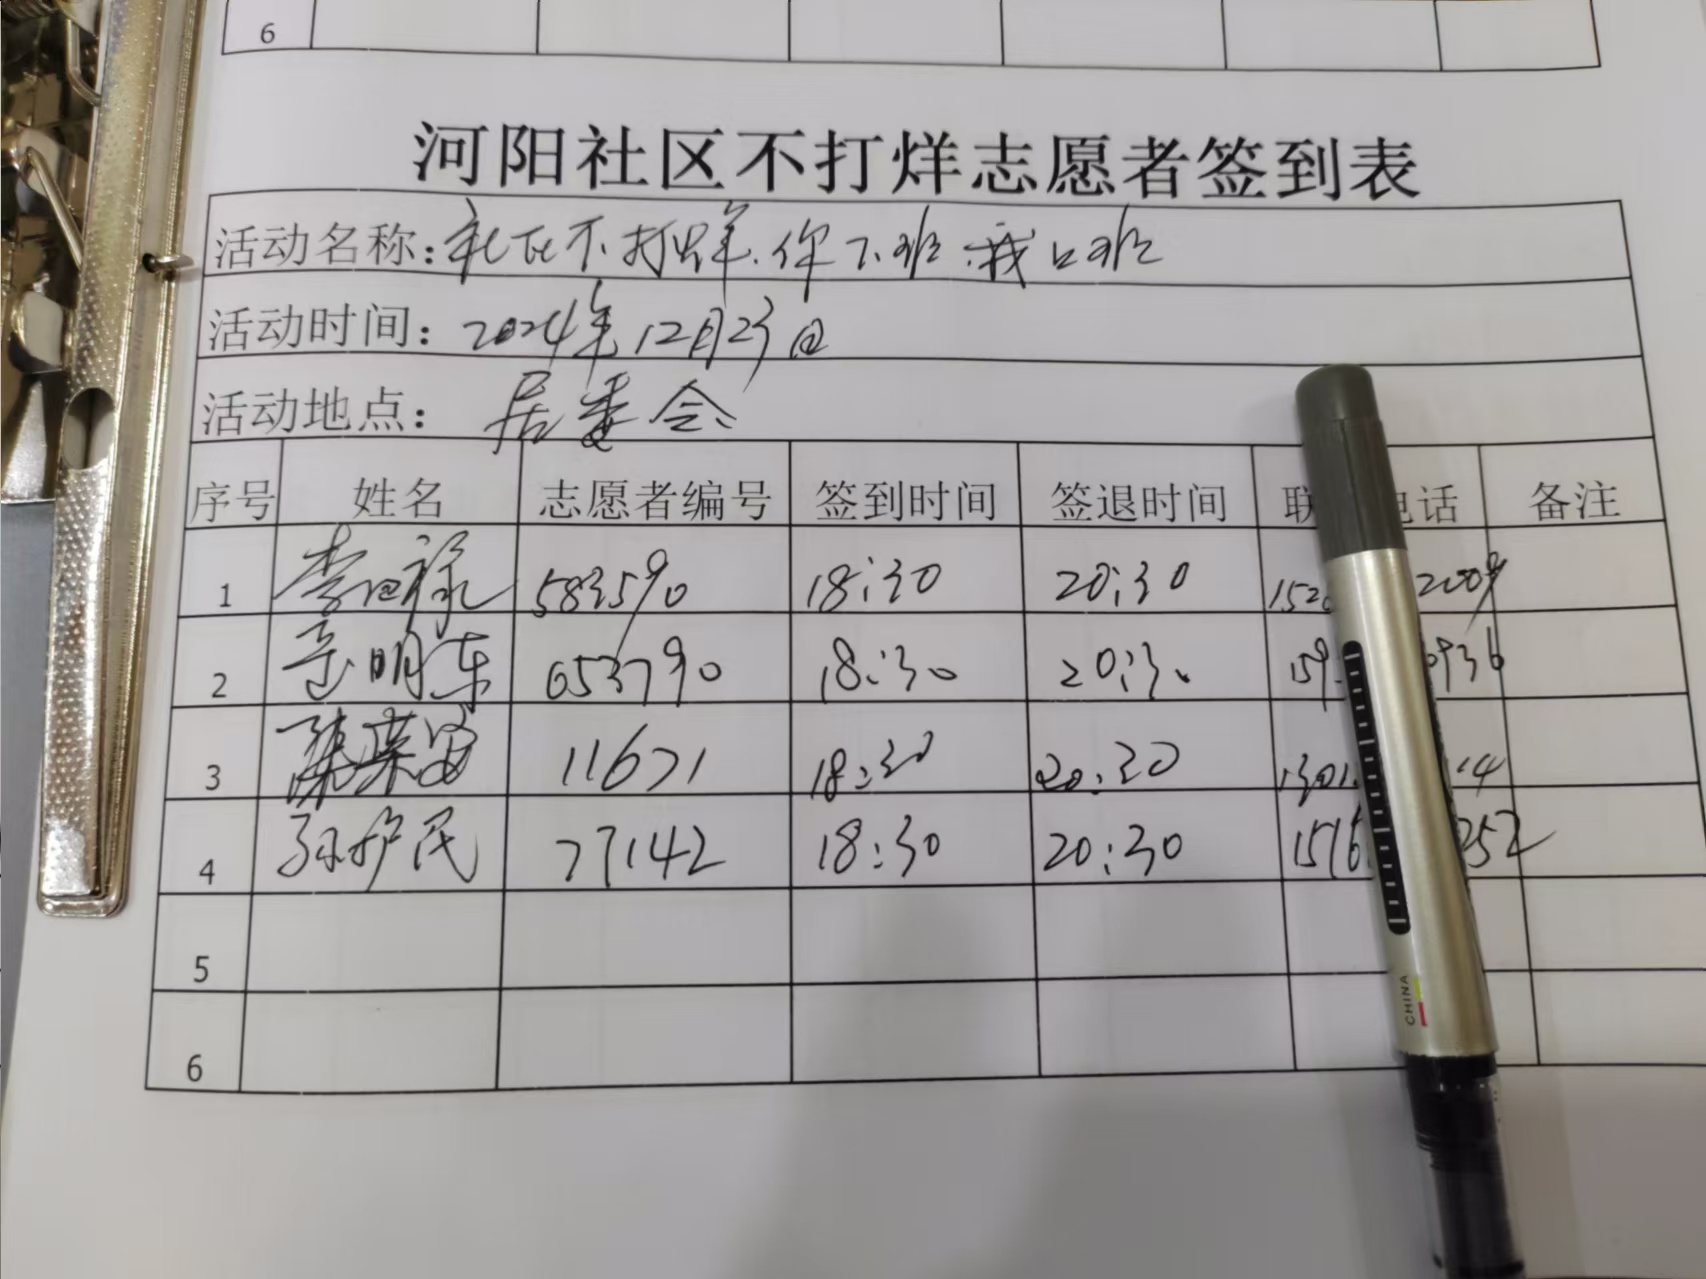 6
河阳社区不打烊志愿者签到表
活动名称:社区不打烊.你下班.我上班
活动时间: 2024年12月23日
活动地点: 居委会
序号 姓名 志愿者编号 签到时间 签退时间 联 电话 备注
1 583590 18:30 20:30 152 2009
2 明东 653790 18:30 20:30 159 936
3 11671 18:30 20:30 1301 14
4 孙护民 77142 18:30 20:30 1516 252
5
6
CHINA